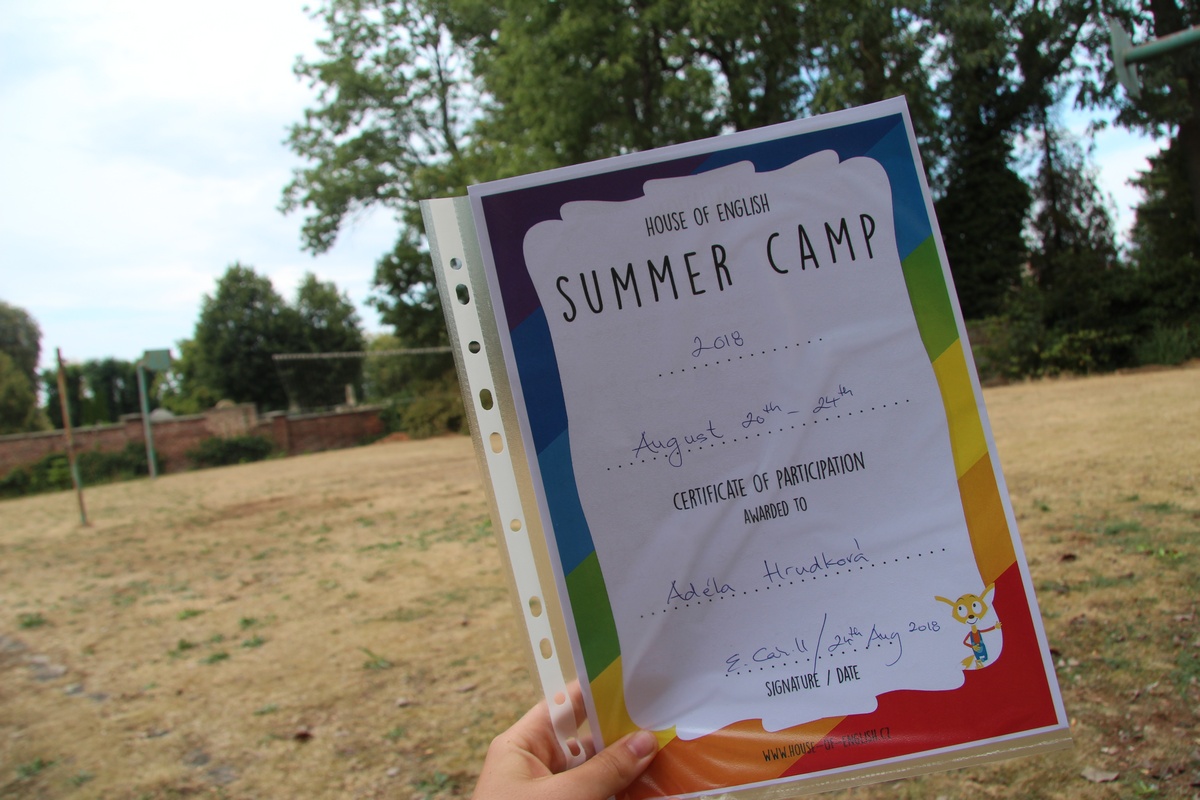 HOUSE OF ENGLISH
SUMMER CAMP
2018
August 20th - 24th
CERTIFICATE OF PARTICIPATION
AWARDED TO
Adéla Hrudková
E. Cahill / 24th Aug 2018
SIGNATURE / DATE
WWW.HOUSE-OF-ENGLISH.CZ